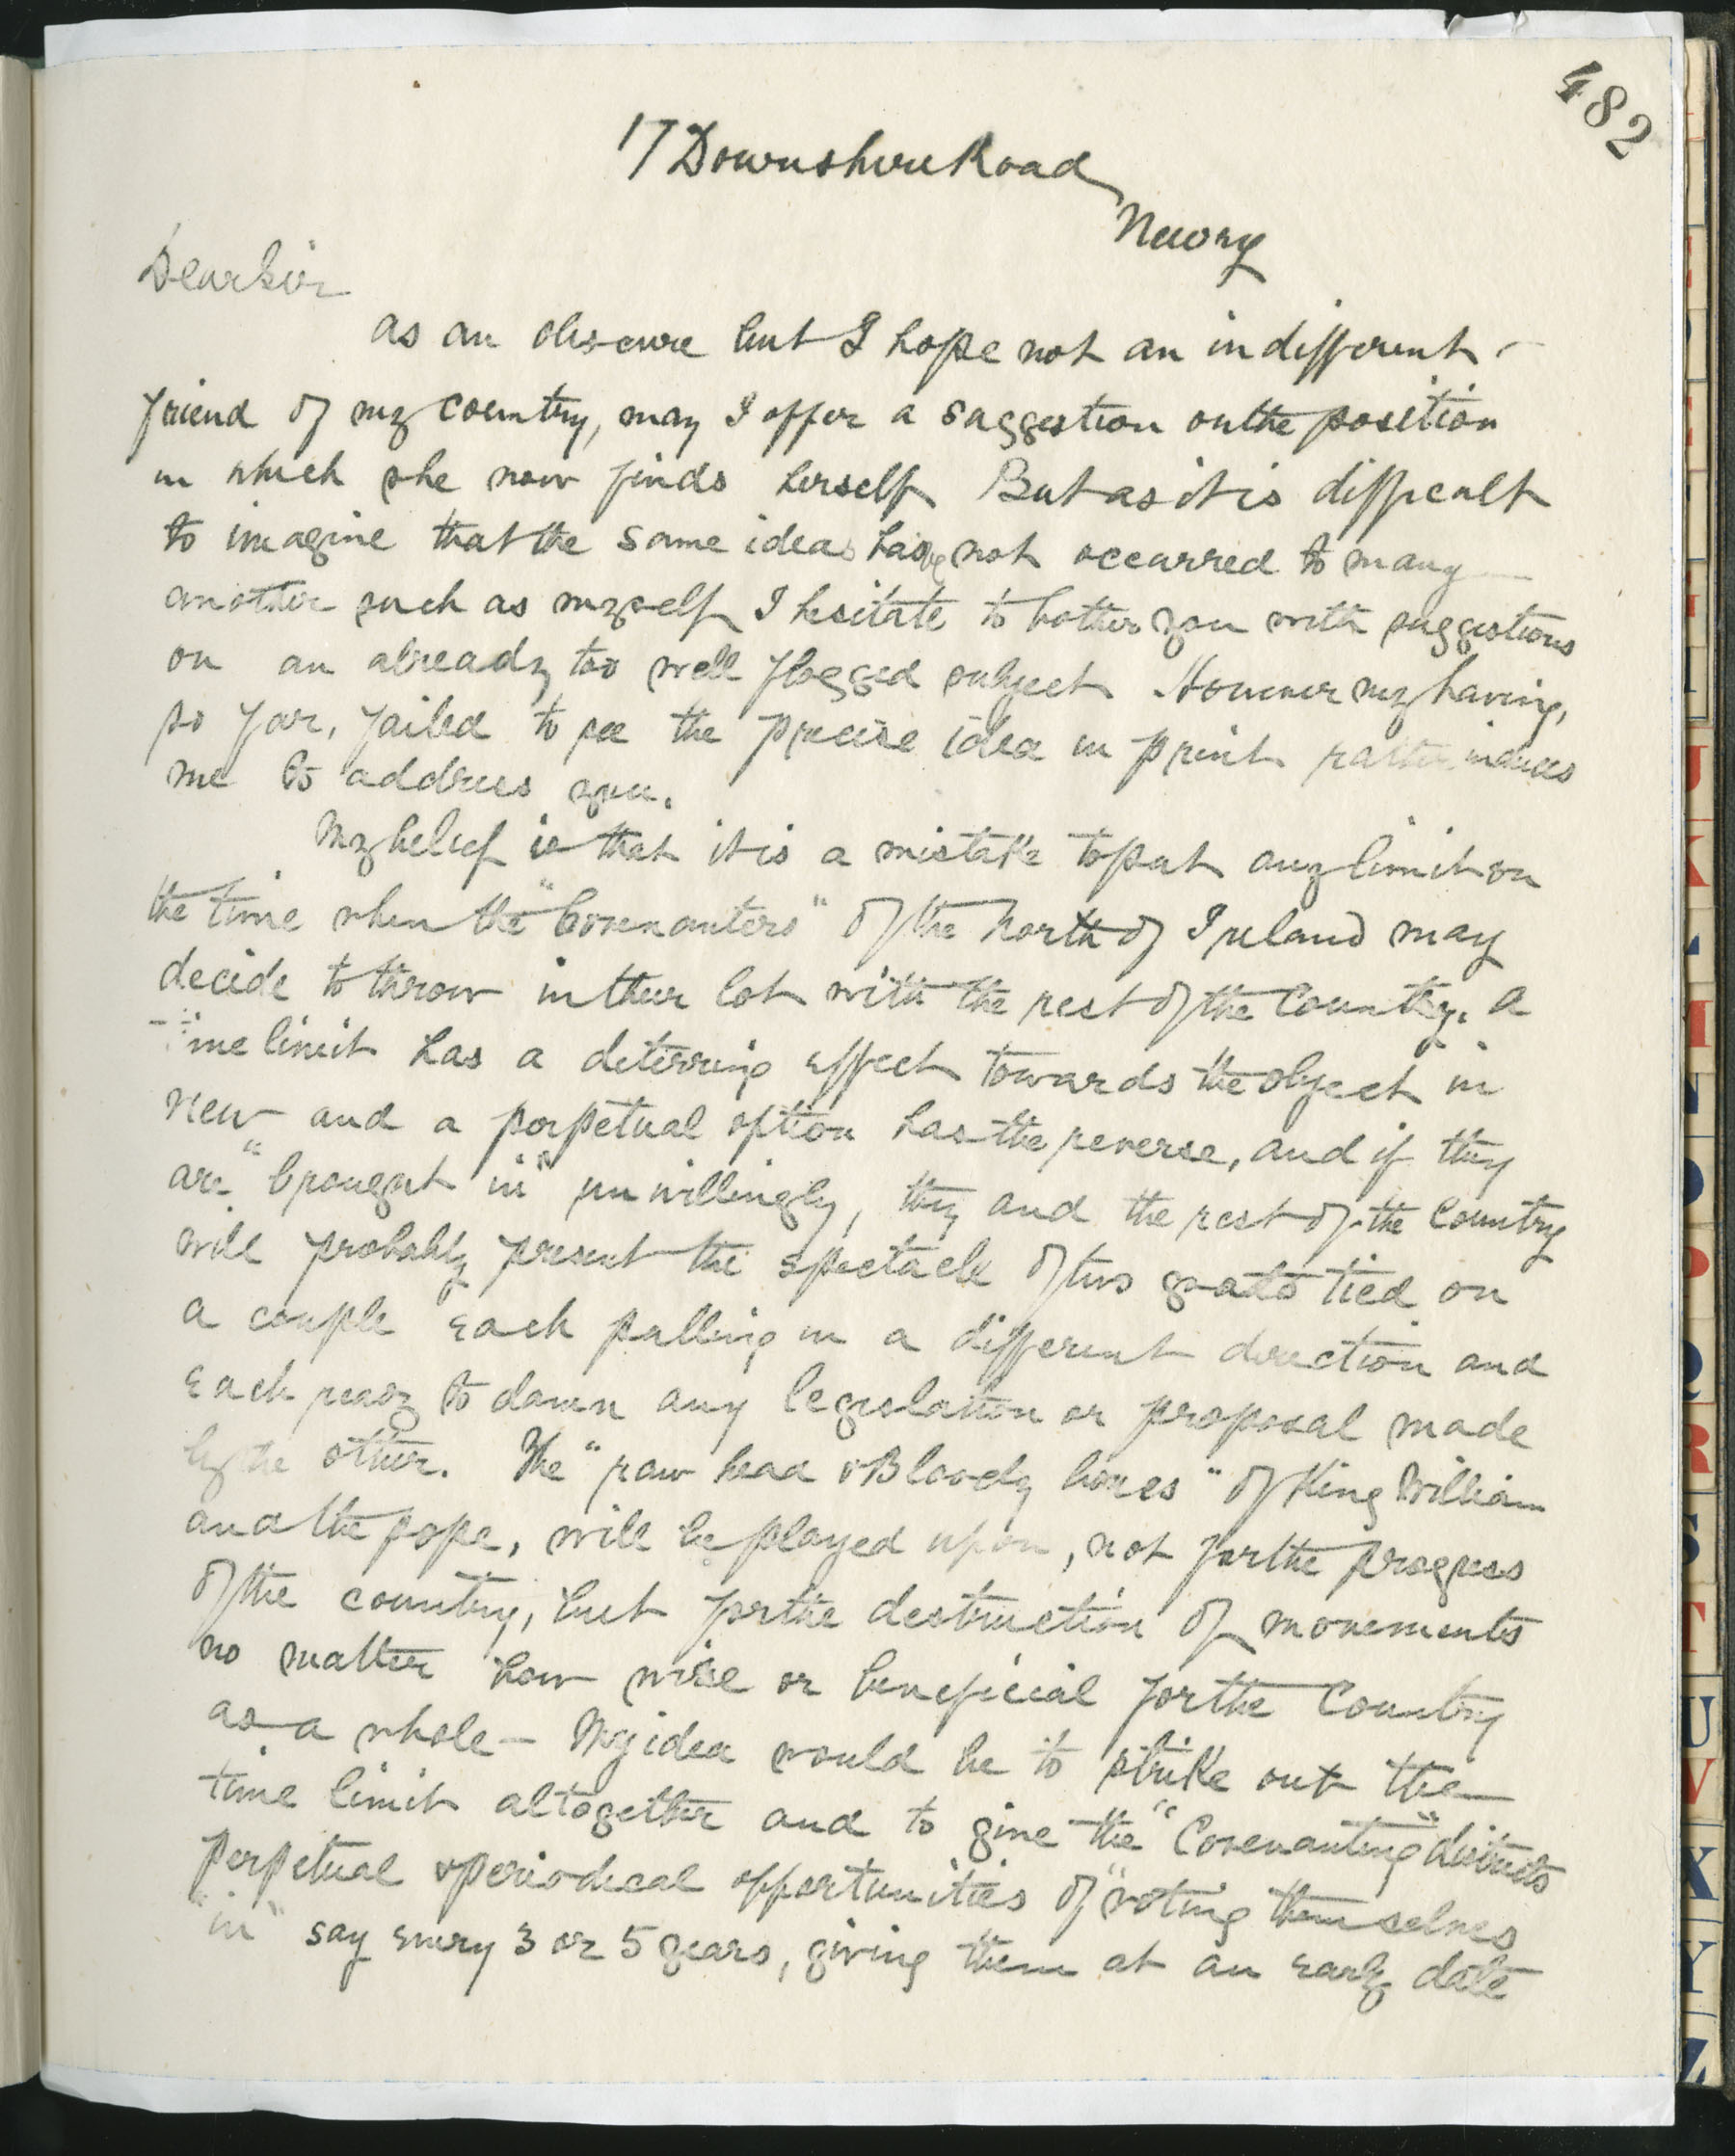 482
17 Downshire Road
Newry
Dear Sir
as an obscure but I hope not an indifferent
friend of my country, may I offer a suggestion on the position
in which she now finds herself But as it is difficult
to imagine that the same ideas have not occurred to many
another such as myself I hesitate to bother you with suggestions
on an already too well flogged subject However my having,
so far, failed to see the precise idea in print rather induces
me to address you.
My belief is that it is a mistake to put any limit on
the time when the "Covenanters" of the North of Ireland may
decide to throw in their lot with the rest of the Country. A
time limit has a deterring effect towards the object in
view and a perpetual option has the reverse, and if they
are "brought in" unwillingly, they and the rest of the Country
will probably present the spectacle of two goats tied on
a couple each pulling in a different direction and
each ready to damn any legislation or proposal made
by the other. The "raw head & Bloody bones" of King William
and the pope, will be played upon, not for the progress
of the country, but for the destruction of movements
no matter how wise or beneficial for the Country
as a whole - My idea would be to strike out the
time limit altogether and to give the "Covenanting" districts
perpetual & periodical opportunities of "voting themselves
in" say every 3 or 5 years, giving them at an early date
J
K
L
M
N
O
P
Q
R
S
T
U
V
X
Y
Z